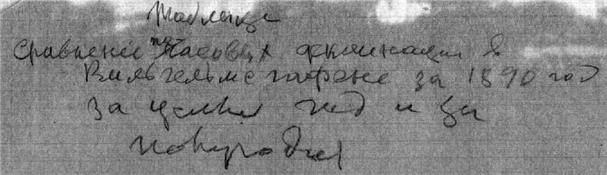 Таблица
Сравнение часовых деклинации в
Вильгельмсгафене за 1890 год
за целый год и за
полугодия